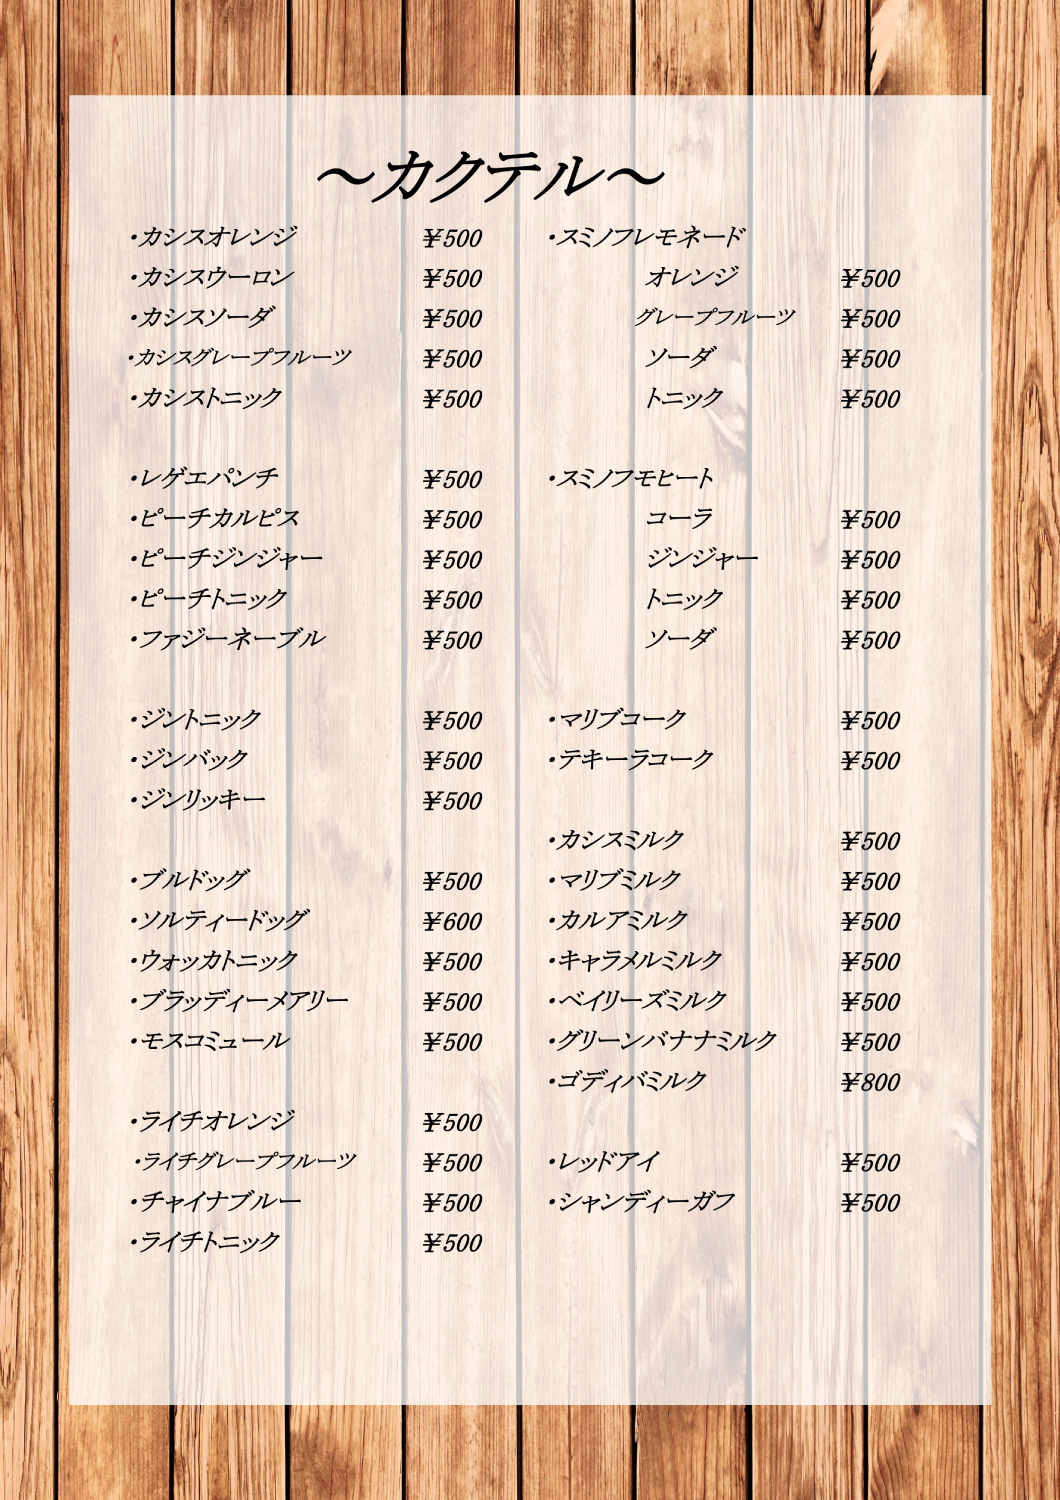 ～カクテル～
・カシスオレンジ ￥500
・カシスウーロン ￥500
・カシスソーダ ￥500
・カシスグレープフルーツ ￥500
・カシストニック ￥500
・レゲエパンチ ￥500
・ピーチカルピス ￥500
・ピーチジンジャー ￥500
・ピーチトニック ￥500
・ファジーネーブル ￥500
・ジントニック ￥500
・ジンバック ￥500
・ジンリッキー ￥500
・ブルドッグ ￥500
・ソルティードッグ ￥600
・ウォッカトニック ￥500
・ブラッディーメアリー ￥500
・モスコミュール ￥500
・ライチオレンジ ￥500
・ライチグレープフルーツ ￥500
・チャイナブルー ￥500
・ライチトニック ￥500
・スミノフレモネード
オレンジ ￥500
グレープフルーツ ￥500
ソーダ ￥500
トニック ￥500
・スミノフモヒート
コーラ ￥500
ジンジャー ￥500
トニック ￥500
ソーダ ￥500
・マリブコーク ￥500
・テキーラコーク ￥500
・カシスミルク ￥500
・マリブミルク ￥500
・カルアミルク ￥500
・キャラメルミルク ￥500
・ベイリーズミルク ￥500
・グリーンバナナミルク ￥500
・ゴディバミルク ￥800
・レッドアイ ￥500
・シャンディーガフ ￥500